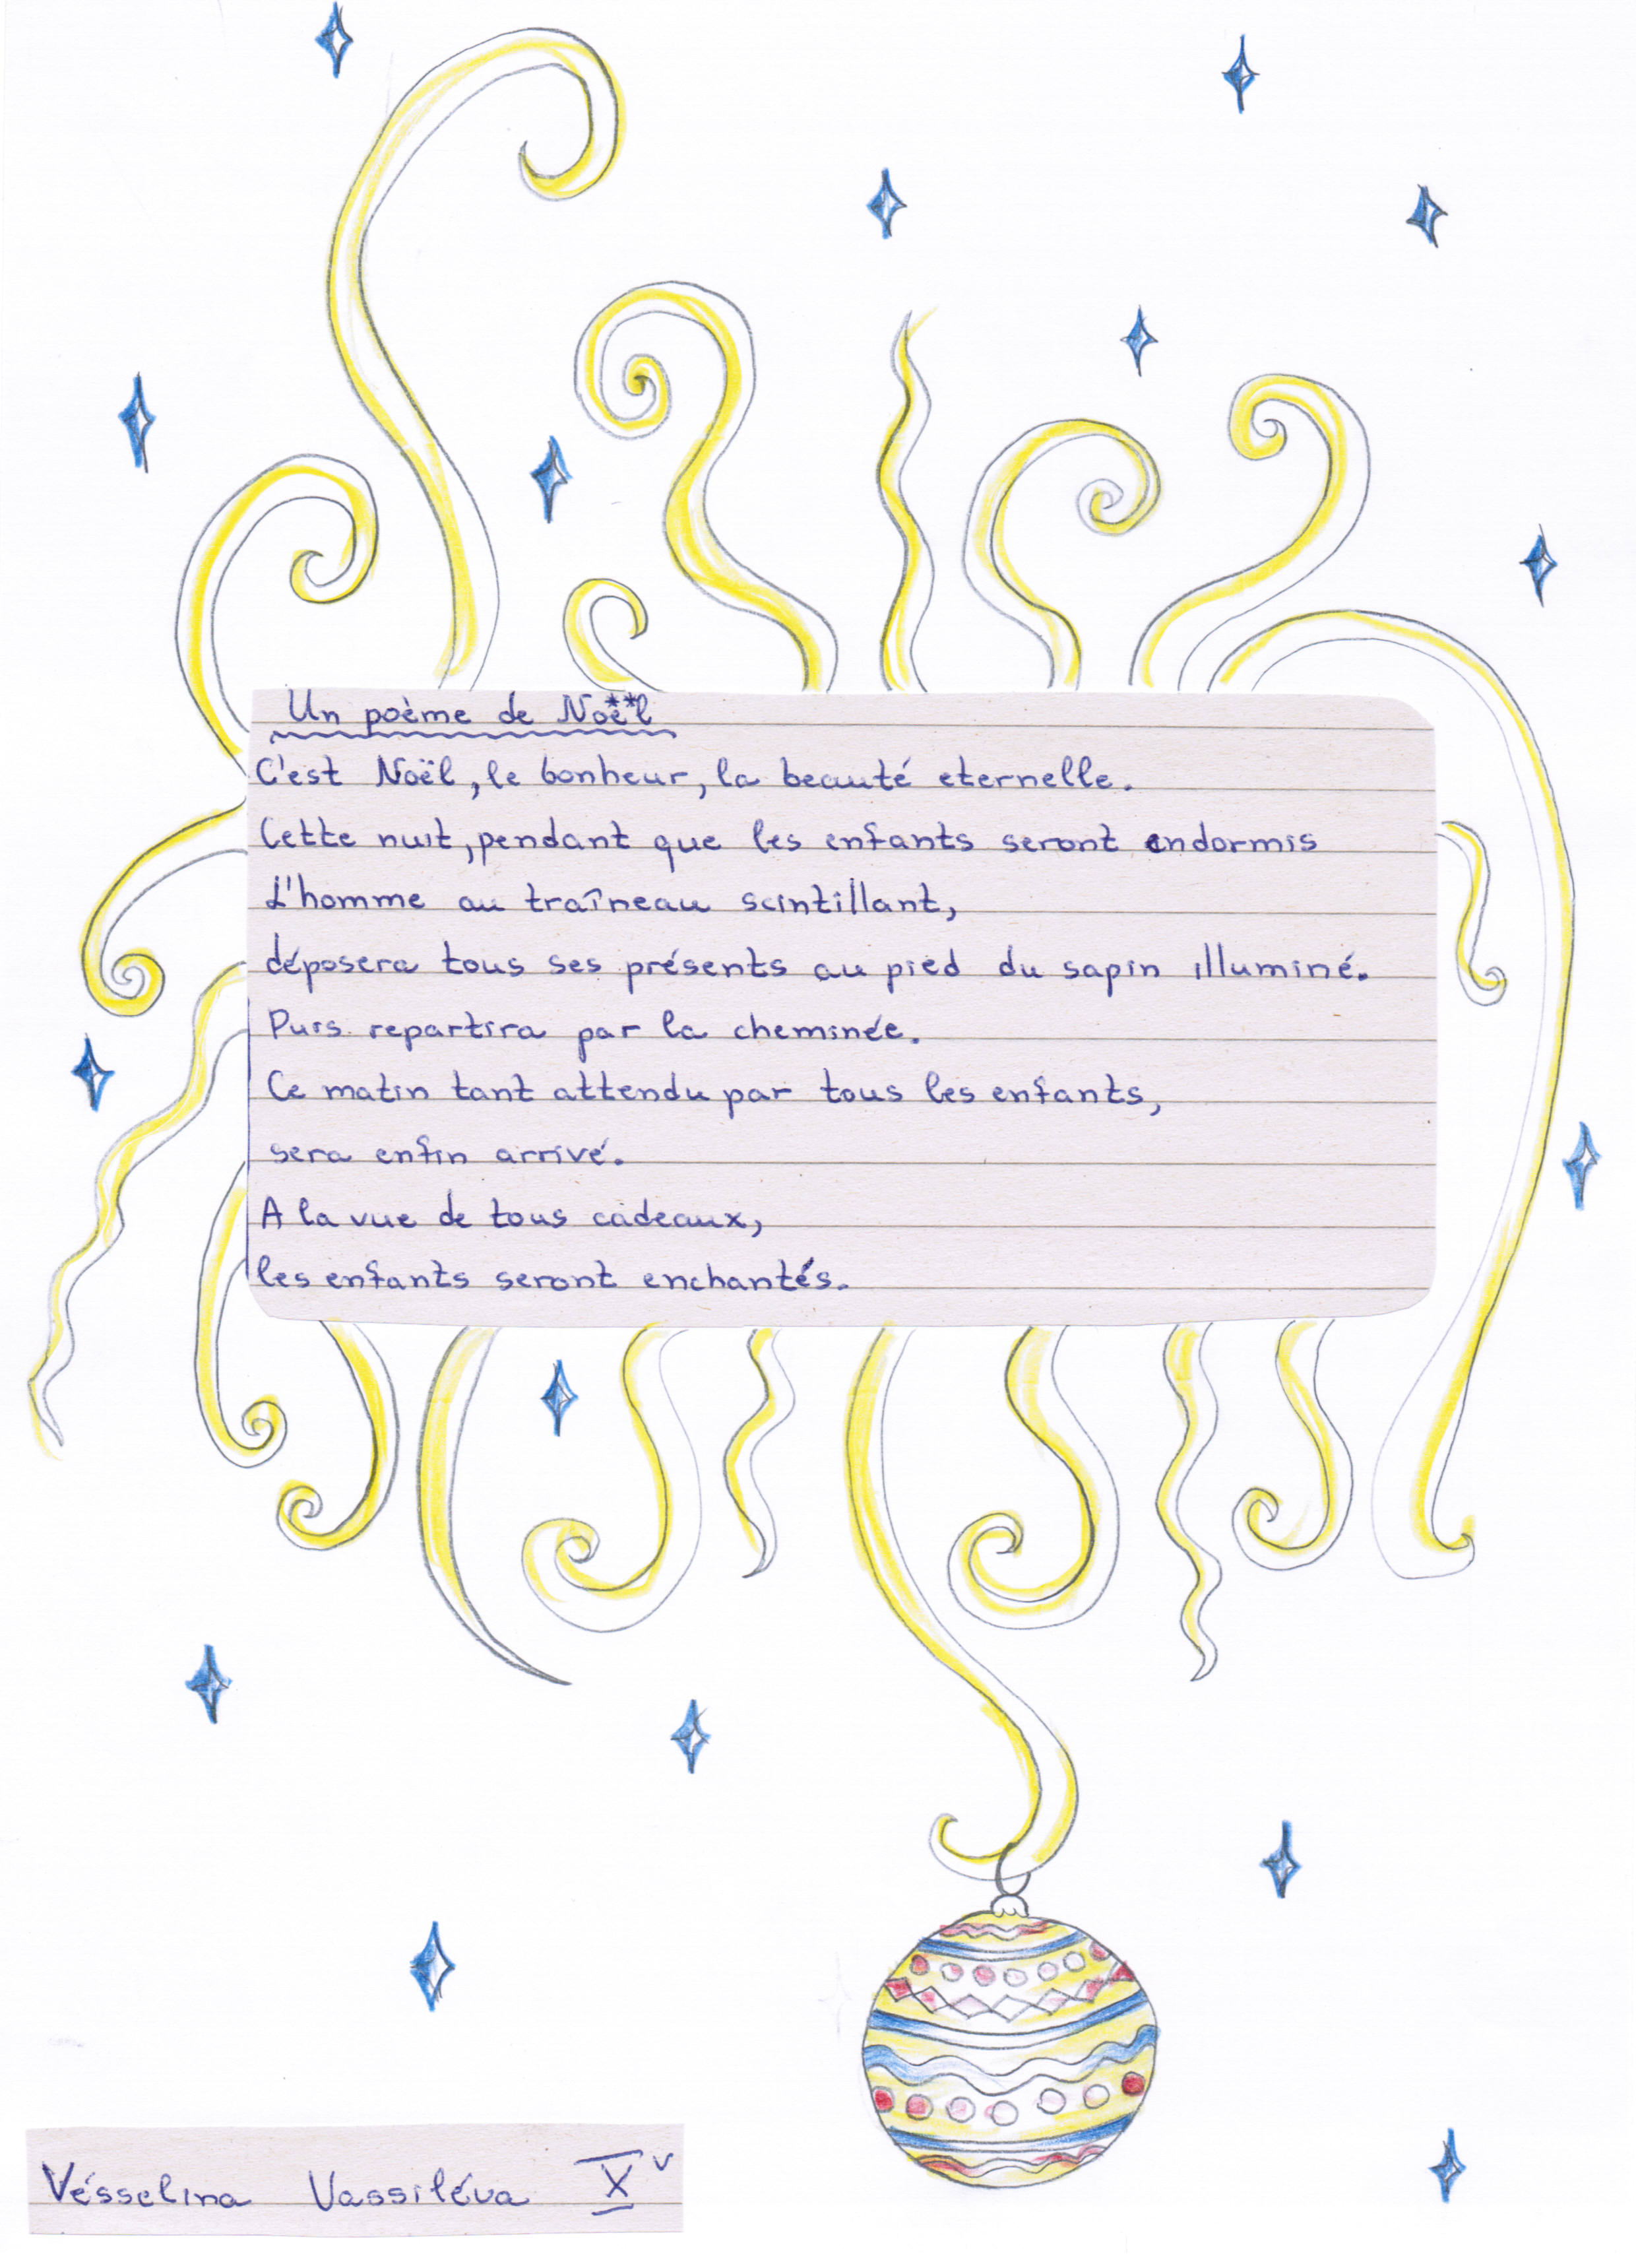 Un poème de Noël
C'est Noël, le bonheur, la beauté eternelle.
Cette nuit, pendant que les enfants seront endormis
L'homme au traîneau scintillant,
déposera tous ses présents au pied du sapin illuminé.
Puis repartira par la cheminée.
Ce matin tant attendu par tous les enfants,
sera enfin arrivé.
A la vue de tous cadeaux,
les enfants seront enchantés.
Vésselina Vassiléva X v